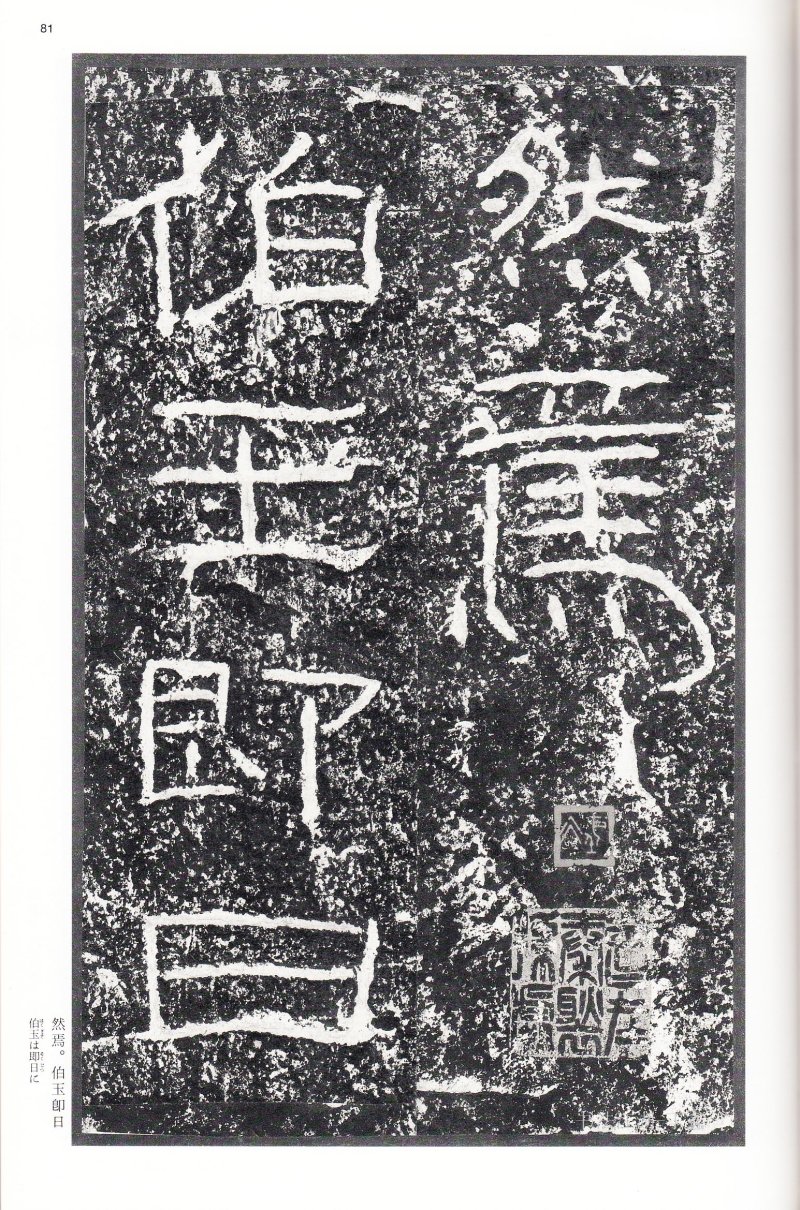 81
然焉
伯玉即日
然焉。伯玉卽日
伯玉は即日に